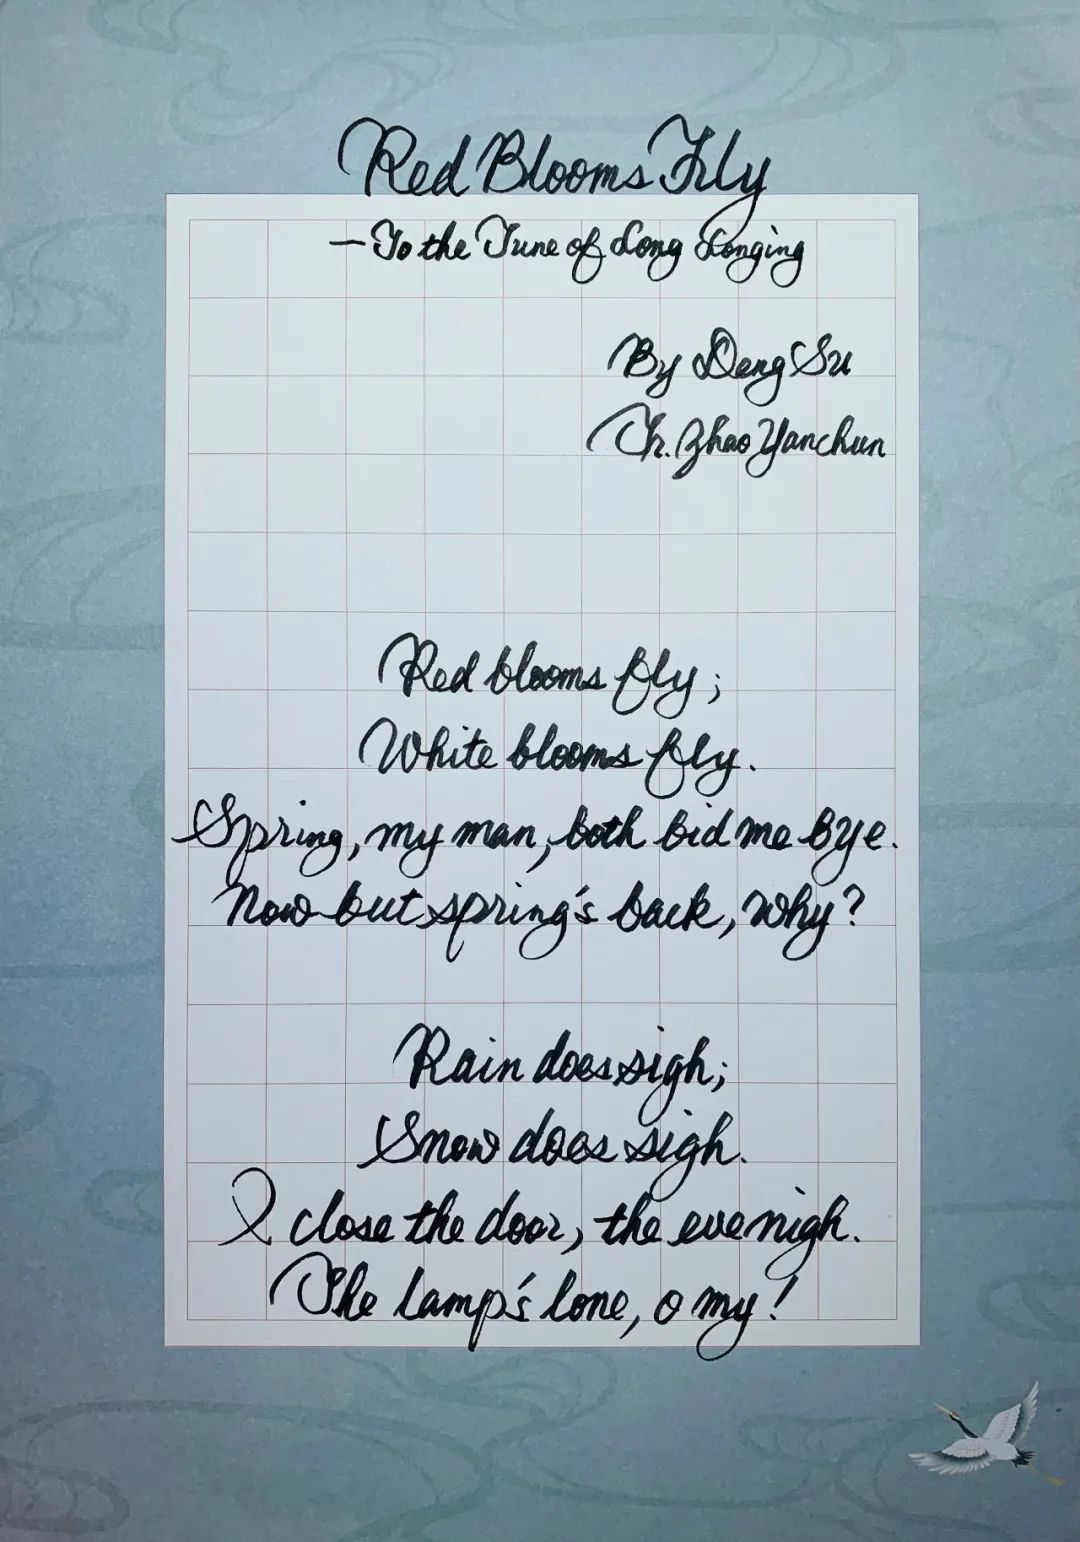 Red Blooms Fly
—To the Tune of Long Longing
By Deng Su
Tr. Zhao Yanchun
Red blooms fly;
White blooms fly.
Spring, my man, both bid me bye.
Now but spring's back, why?
Rain does sigh;
Snow does sigh.
I close the door, the eve nigh.
The lamp's lone, o my!